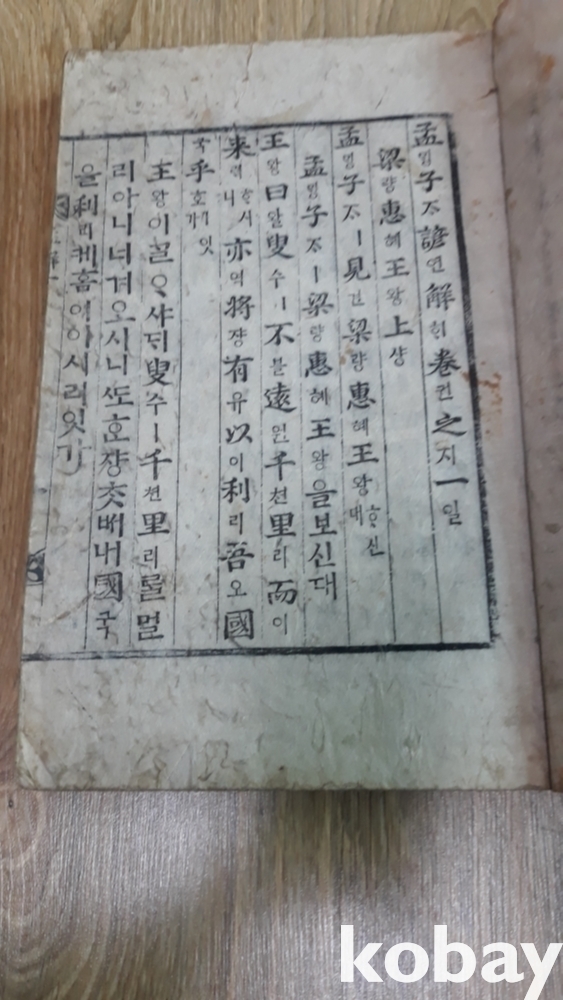 孟ᄆᆡᆼ子ᄌᆞ諺언解ᄒᆡ卷권之지一일
梁량惠혜王왕上샹
孟ᄆᆡᆼ子ᄌᆞㅣ見견梁량惠혜王왕ᄒᆞ신대
孟ᄆᆡᆼ子ᄌᆞㅣ梁량惠혜王왕을보신대
王왕曰왈叟수ㅣ不블遠원千쳔里리而이
來ᄅᆡᄒᆞ시니亦역將쟝有유以이利리吾오國
국乎호ᄌᆡ잇가
王왕이ᄀᆞᆯᄋᆞ샤ᄃᆡ叟수ㅣ千쳔里리ᄅᆞᆯ멀
리아니너겨오시니ᄯᅩᄒᆞᆫ쟝ᄎᆞᆺᄡᅥ내國국
을利리케홈이이시리잇가
kobay